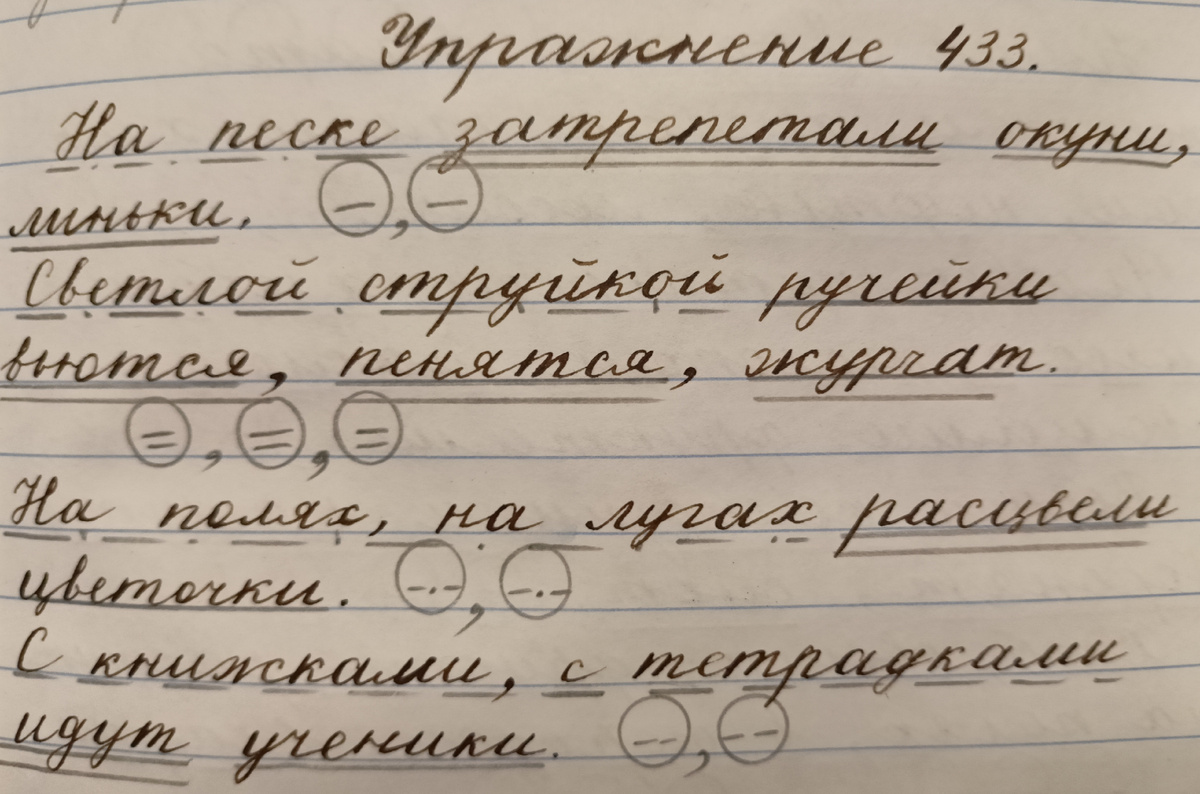 Упражнение 433.
На песке затрепетали окуни,
линьки.
Светлой струйкой ручейки
вьются, пенятся, журчат.
На полях, на лугах расцвели
цветочки.
С книжками, с тетрадками
идут ученики.